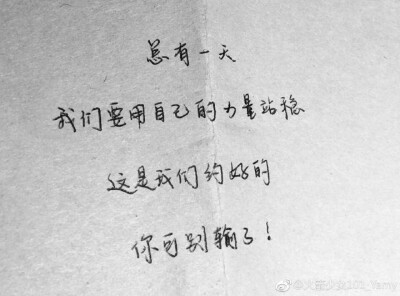 总有一天
我们要用自己的力量站稳
这是我们约好的
你可别输了!